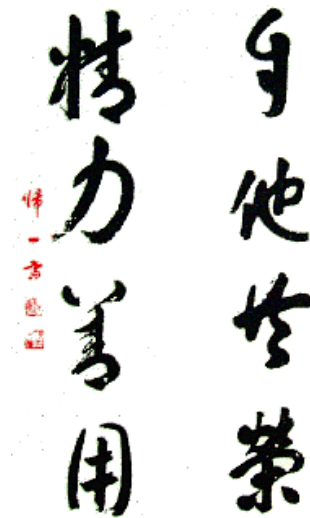 自他共榮
精力善用
帰一斎